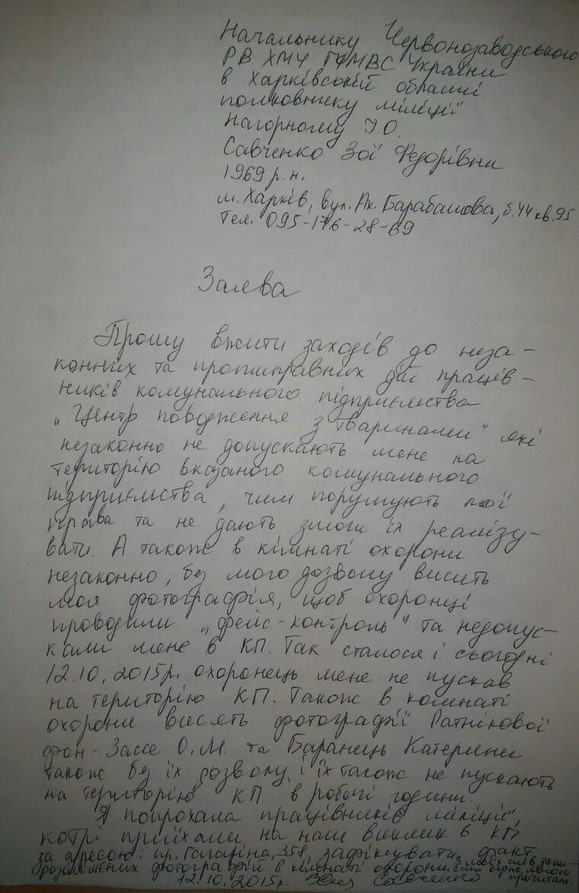 Начальнику Червонозаводського
РВ ХМУ ГУМВС України
в Харківській області
полковнику міліції
Нагорному І.О.
Савченко Зої Федорівни
1969 р.н.
м. Харків, вул. Ак. Барабашова, б. 44 кв. 95
Тел. 095-176-28-69
Заява
Прошу вжити заходів до неза-
конних та протиправних дій праців-
ників комунального підприємства
„Центр поводження з тваринами" які
незаконно не допускають мене на
територію вказаного комунального
підприємства, чим порушують мої
права та не дають змоги їх реалізу-
вати. А також в кімнаті охорони
незаконно, без мого дозволу висить
моя фотографія, щоб охоронці
проводили „фейс-контроль" та недопус-
кали мене в КП. Так сталося і сьогодні
12.10.2015р. охоронець мене не пускав
на територію КП. Також в кімнаті
охорони висять фотографії Ратнікової
фон-Зассе О.М. та Баранець Катерини
також без їх дозволу, і їх також не пускають
на територію КП в робочі години.
Я попрохала працівників міліції,
котрі приїхали на наш виклик в КП
за адресою: пр. Гагаріна, 358, зафіксувати факт
розміщених фотографій в кімнаті охорони.
З моїх слів запи-
сано вірно, мною
прочитано
12.10.2015р. Савченко